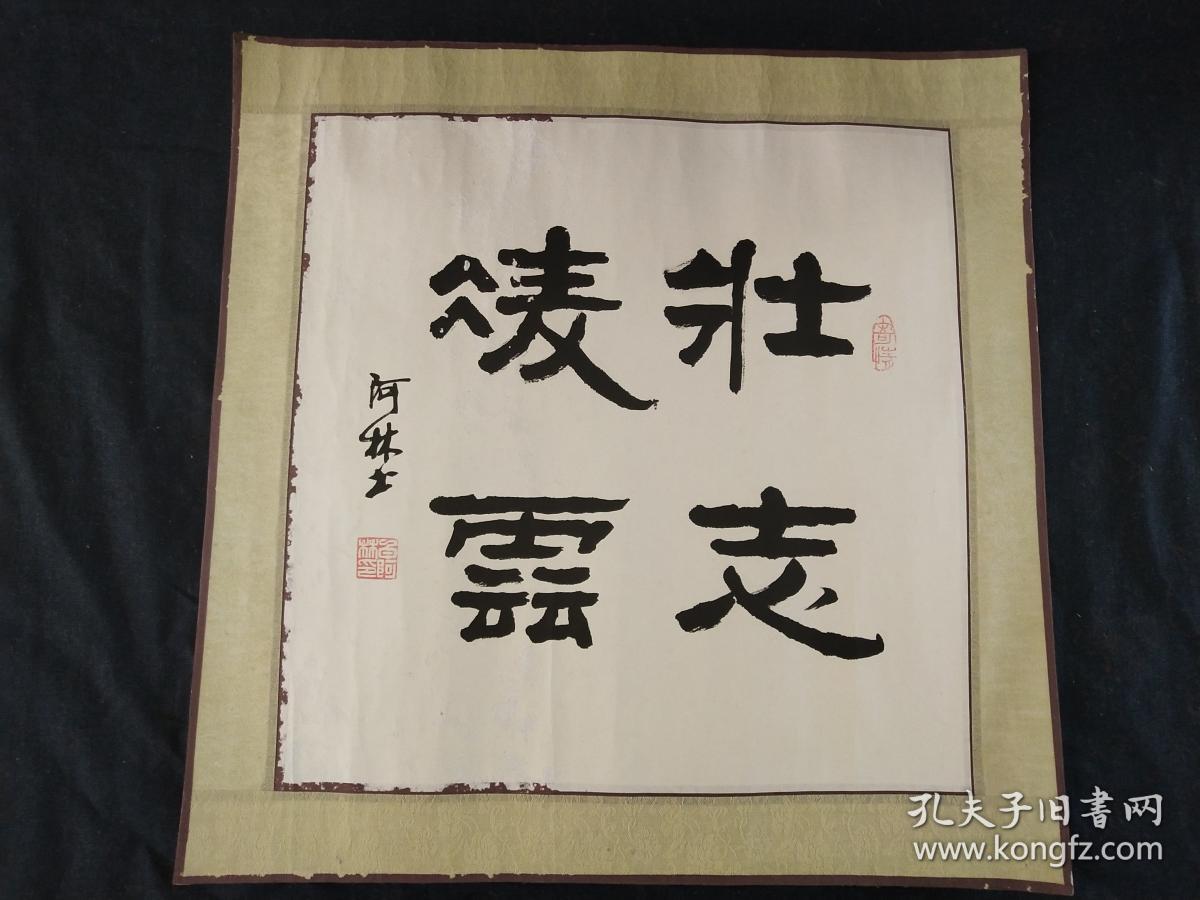 壯志
凌雲
阿林
孔夫子旧書网
www.kongfz.com